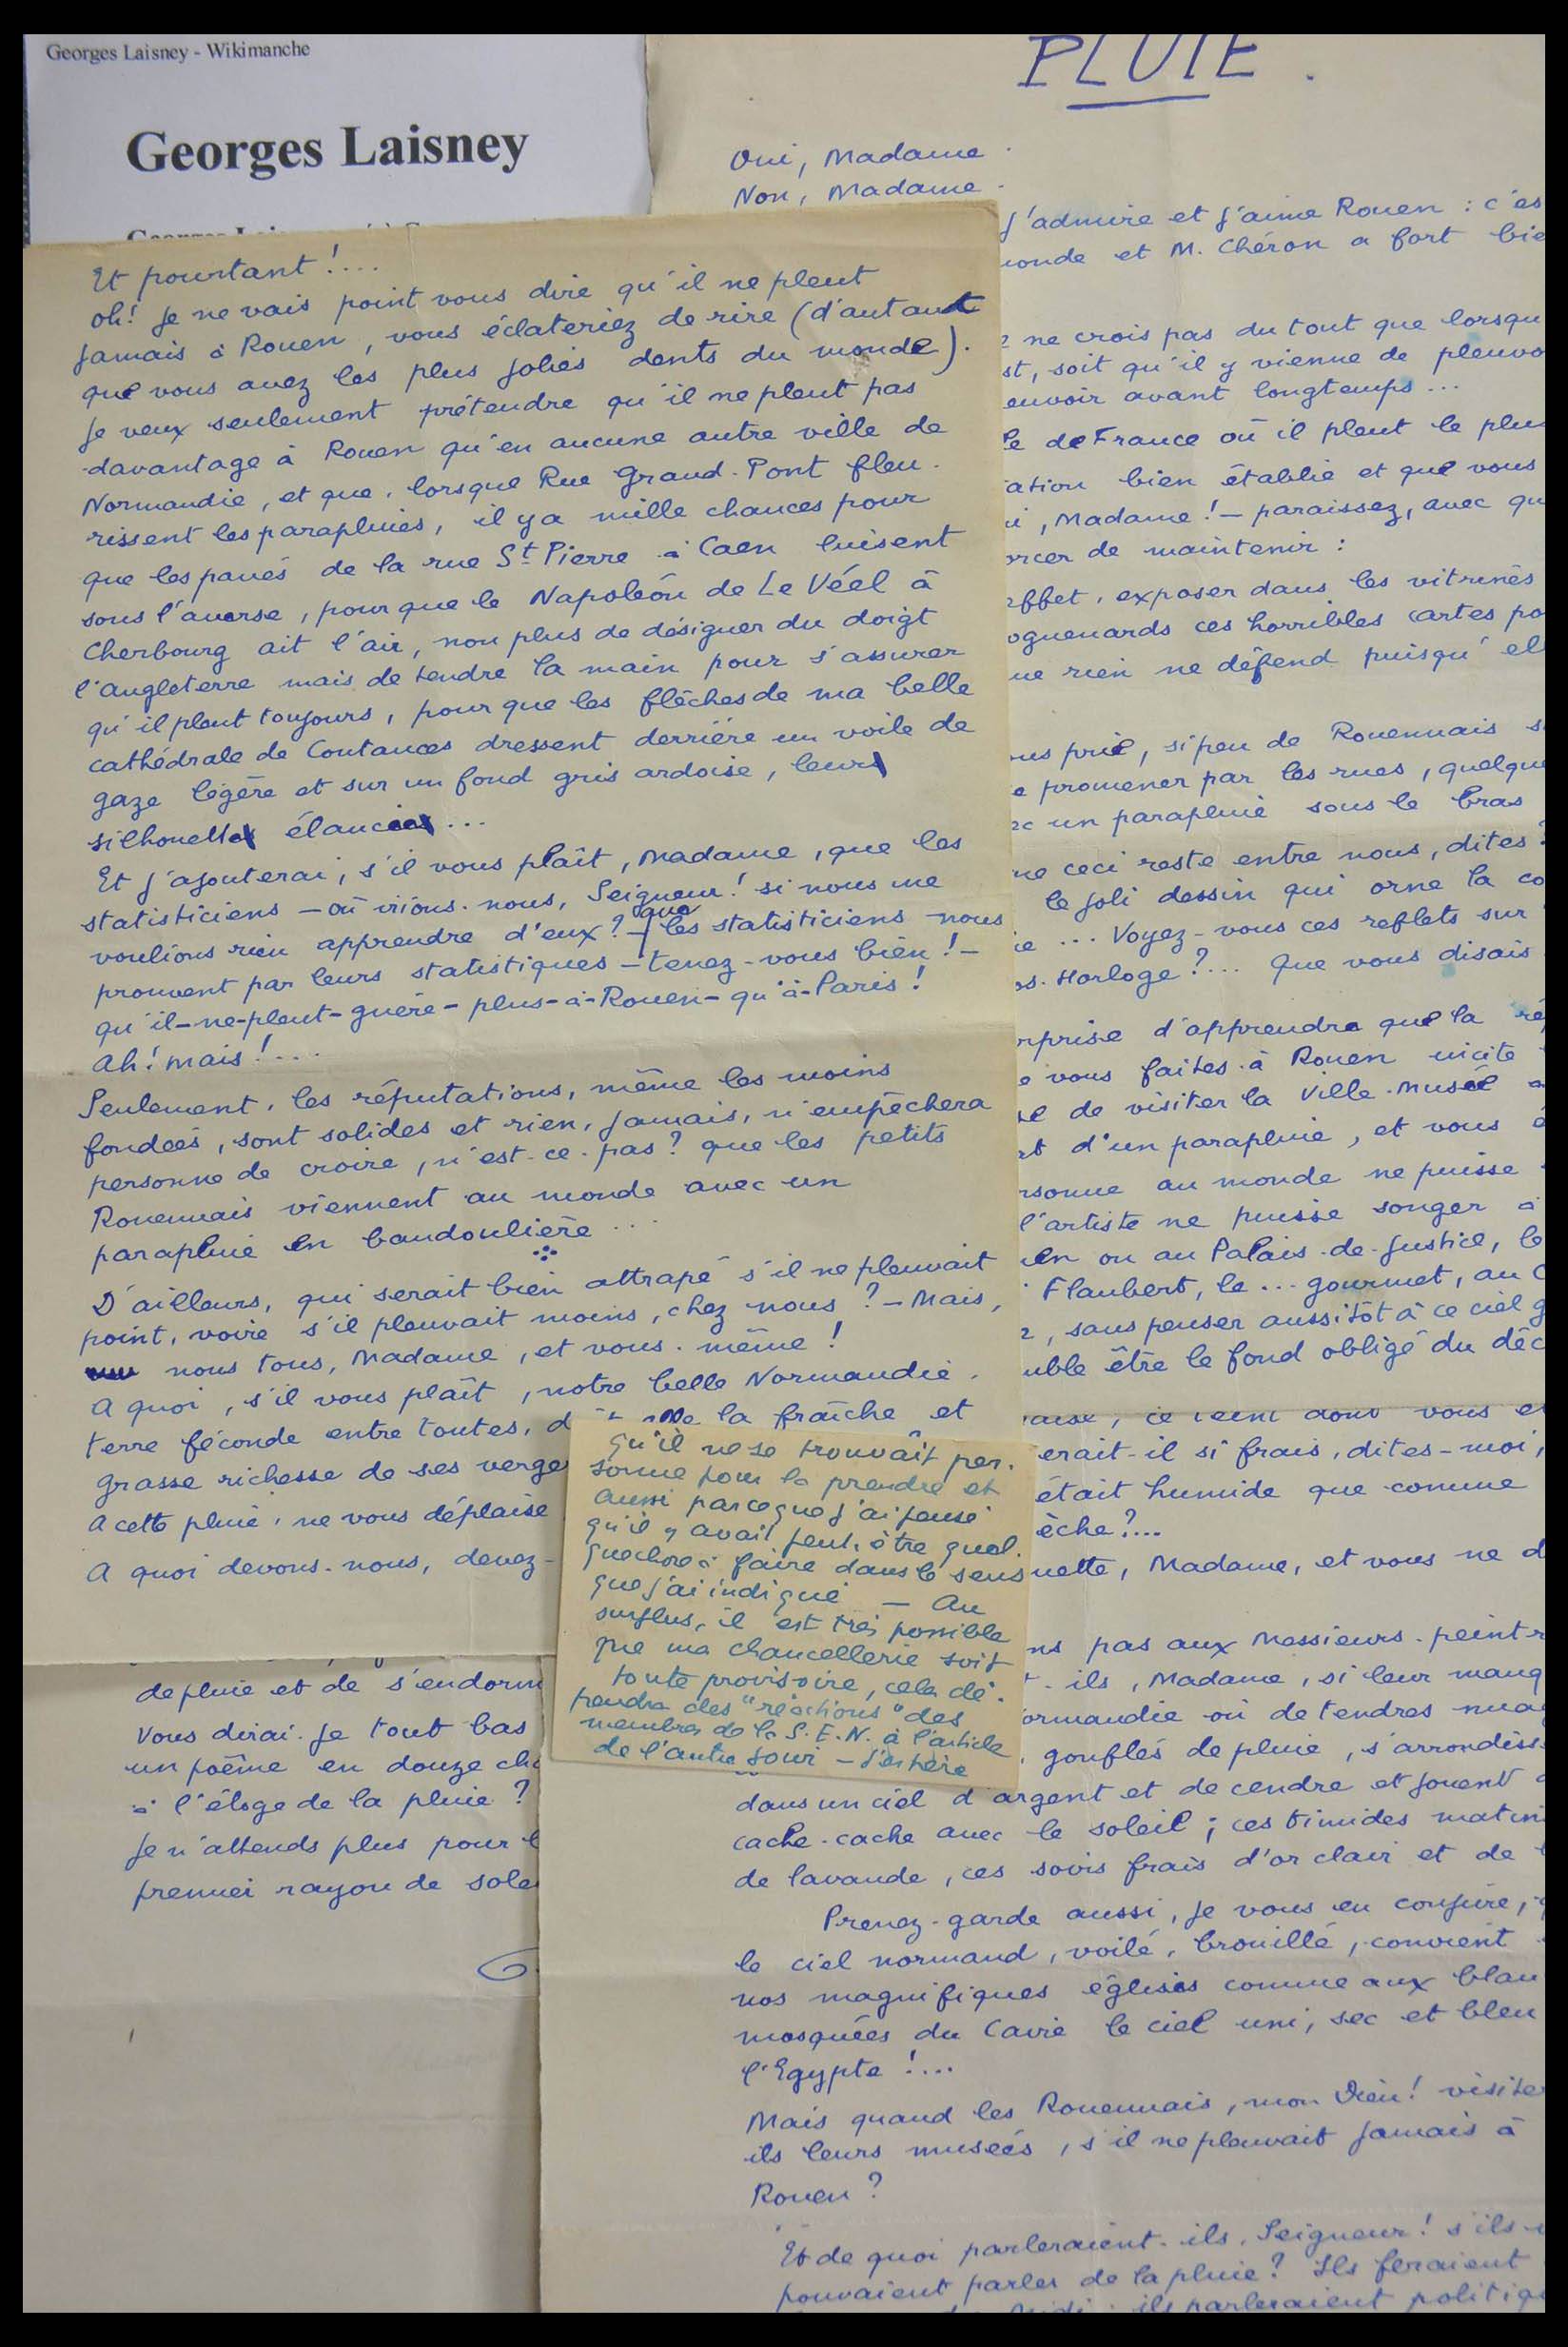 Georges Laisney - Wikimanche
Georges Laisney
PLUIE.
Oui, Madame.
Non, Madame.
j'admire et j'aime Rouen : c'es
onde et M. Chéron a fort bie
ne crois pas du tout que lorsqu
st, soit qu'il y vienne de pleuvo
euvoir avant longtemps...
le de France où il pleut le plus
ation bien établie et que vous
i, Madame! - paraissez, avec qu
orcer de maintenir :
effet, exposer dans les vitrines
oguenards ces horribles cartes po
ue rien ne défend puisqu'el
ous prie, si peu de Rouennais s
e promener par les rues, quelque
ec un parapluie sous le bras
ue ceci reste entre nous, dites?
le joli dessin qui orne la co
ie ... Voyez-vous ces reflets sur
os-Horloge ?... Que vous disais
rprise d'apprendre que la ré
e vous faites à Rouen incite
de visiter la Ville-Musée
t d'un parapluie, et vous
rsonne au monde ne puisse
l'artiste ne puisse songer à
en ou au Palais-de-Justice, le
Flaubert, le ... gourmet, au
, sans penser aussitôt à ce ciel g
mble être le fond obligé du déc
aise, ce teint dont vous e
erait-il si frais, dites-moi,
était humide que comme
èche ?...
nette, Madame, et vous ne d
ns pas aux Messieurs-peintr
ils, Madame, si leur manq
ormandie où de tendres nuag
gonflés de pluie, s'arrondiss
dans un ciel d'argent et de cendre et jouent
cache-cache avec le soleil ; ces timides matin
de lavande, ces soirs frais d'or clair et de
Prenez-garde aussi, je vous en conjure,
le ciel normand, voilé, brouillé, convient
nos magnifiques églises comme aux blan
mosquées du Caire le ciel uni, sec et bleu
l'Egypte !...
Mais quand les Rouennais, mon Dieu! visite
ils leurs musées, s'il ne pleuvait jamais à
Rouen ?
Et de quoi parleraient-ils, Seigneur! s'ils
pouvaient parler de la pluie? Ils feraient
ils parleraient politiq
Et pourtant !....
Oh! Je ne vais point vous dire qu'il ne pleut
jamais à Rouen, vous éclateriez de rire (d'autant
que vous avez les plus jolies dents du monde).
Je veux seulement prétendre qu'il ne pleut pas
davantage à Rouen qu'en aucune autre ville de
Normandie, et que, lorsque Rue Grand-Pont fleu-
rissent les parapluies, il y a mille chances pour
que les pavés de la rue St Pierre à Caen luisent
sous l'averse, pour que le Napoléon de Le Véel à
Cherbourg ait l'air, non plus de désigner du doigt
l'Angleterre mais de tendre la main pour s'assurer
qu'il pleut toujours, pour que les flèches de ma belle
cathédrale de Coutances dressent derrière un voile de
gaze légère et sur un fond gris ardoise, leur
silhouette élancée...
Et j'ajouterai, s'il vous plaît, Madame, que les
statisticiens - où irions-nous, Seigneur! si nous ne
voulions rien apprendre d'eux? - que les statisticiens nous
prouvent par leurs statistiques - tenez-vous bien! -
qu'il-ne-pleut-guère-plus-à-Rouen-qu'à-Paris!
Ah! mais!....
Seulement, les réputations, même les moins
fondées, sont solides et rien, jamais, n'empêchera
personne de croire, n'est-ce-pas? que les petits
Rouennais viennent au monde avec un
parapluie en bandoulière...
D'ailleurs, qui serait bien attrapé s'il ne pleuvait
point, voire s'il pleuvait moins, chez nous ? - Mais,
nous tous, Madame, et vous-même !
A quoi, s'il vous plaît, notre belle Normandie,
terre féconde entre toutes, la fraîche et
grasse richesse de ses verge
A cette pluie, ne vous déplaise
A quoi devons-nous, devez-
qu'il ne se trouvait per-
sonne pour la prendre et
aussi parce que j'ai pensé
qu'il y avait peut-être quel-
que chose à faire dans le sens
que j'ai indiqué - Au
surplus, il est très possible
que ma chancellerie soit
toute provisoire, cela dé-
pendra des "réactions" des
membres de la S.E.N. à l'article
de l'autre jour - J'espère
de pluie et de s'endorm
Vous dirai-je tout bas
un poème en douze cha
à l'éloge de la pluie ?
Je n'attends plus pour l
premier rayon de sole